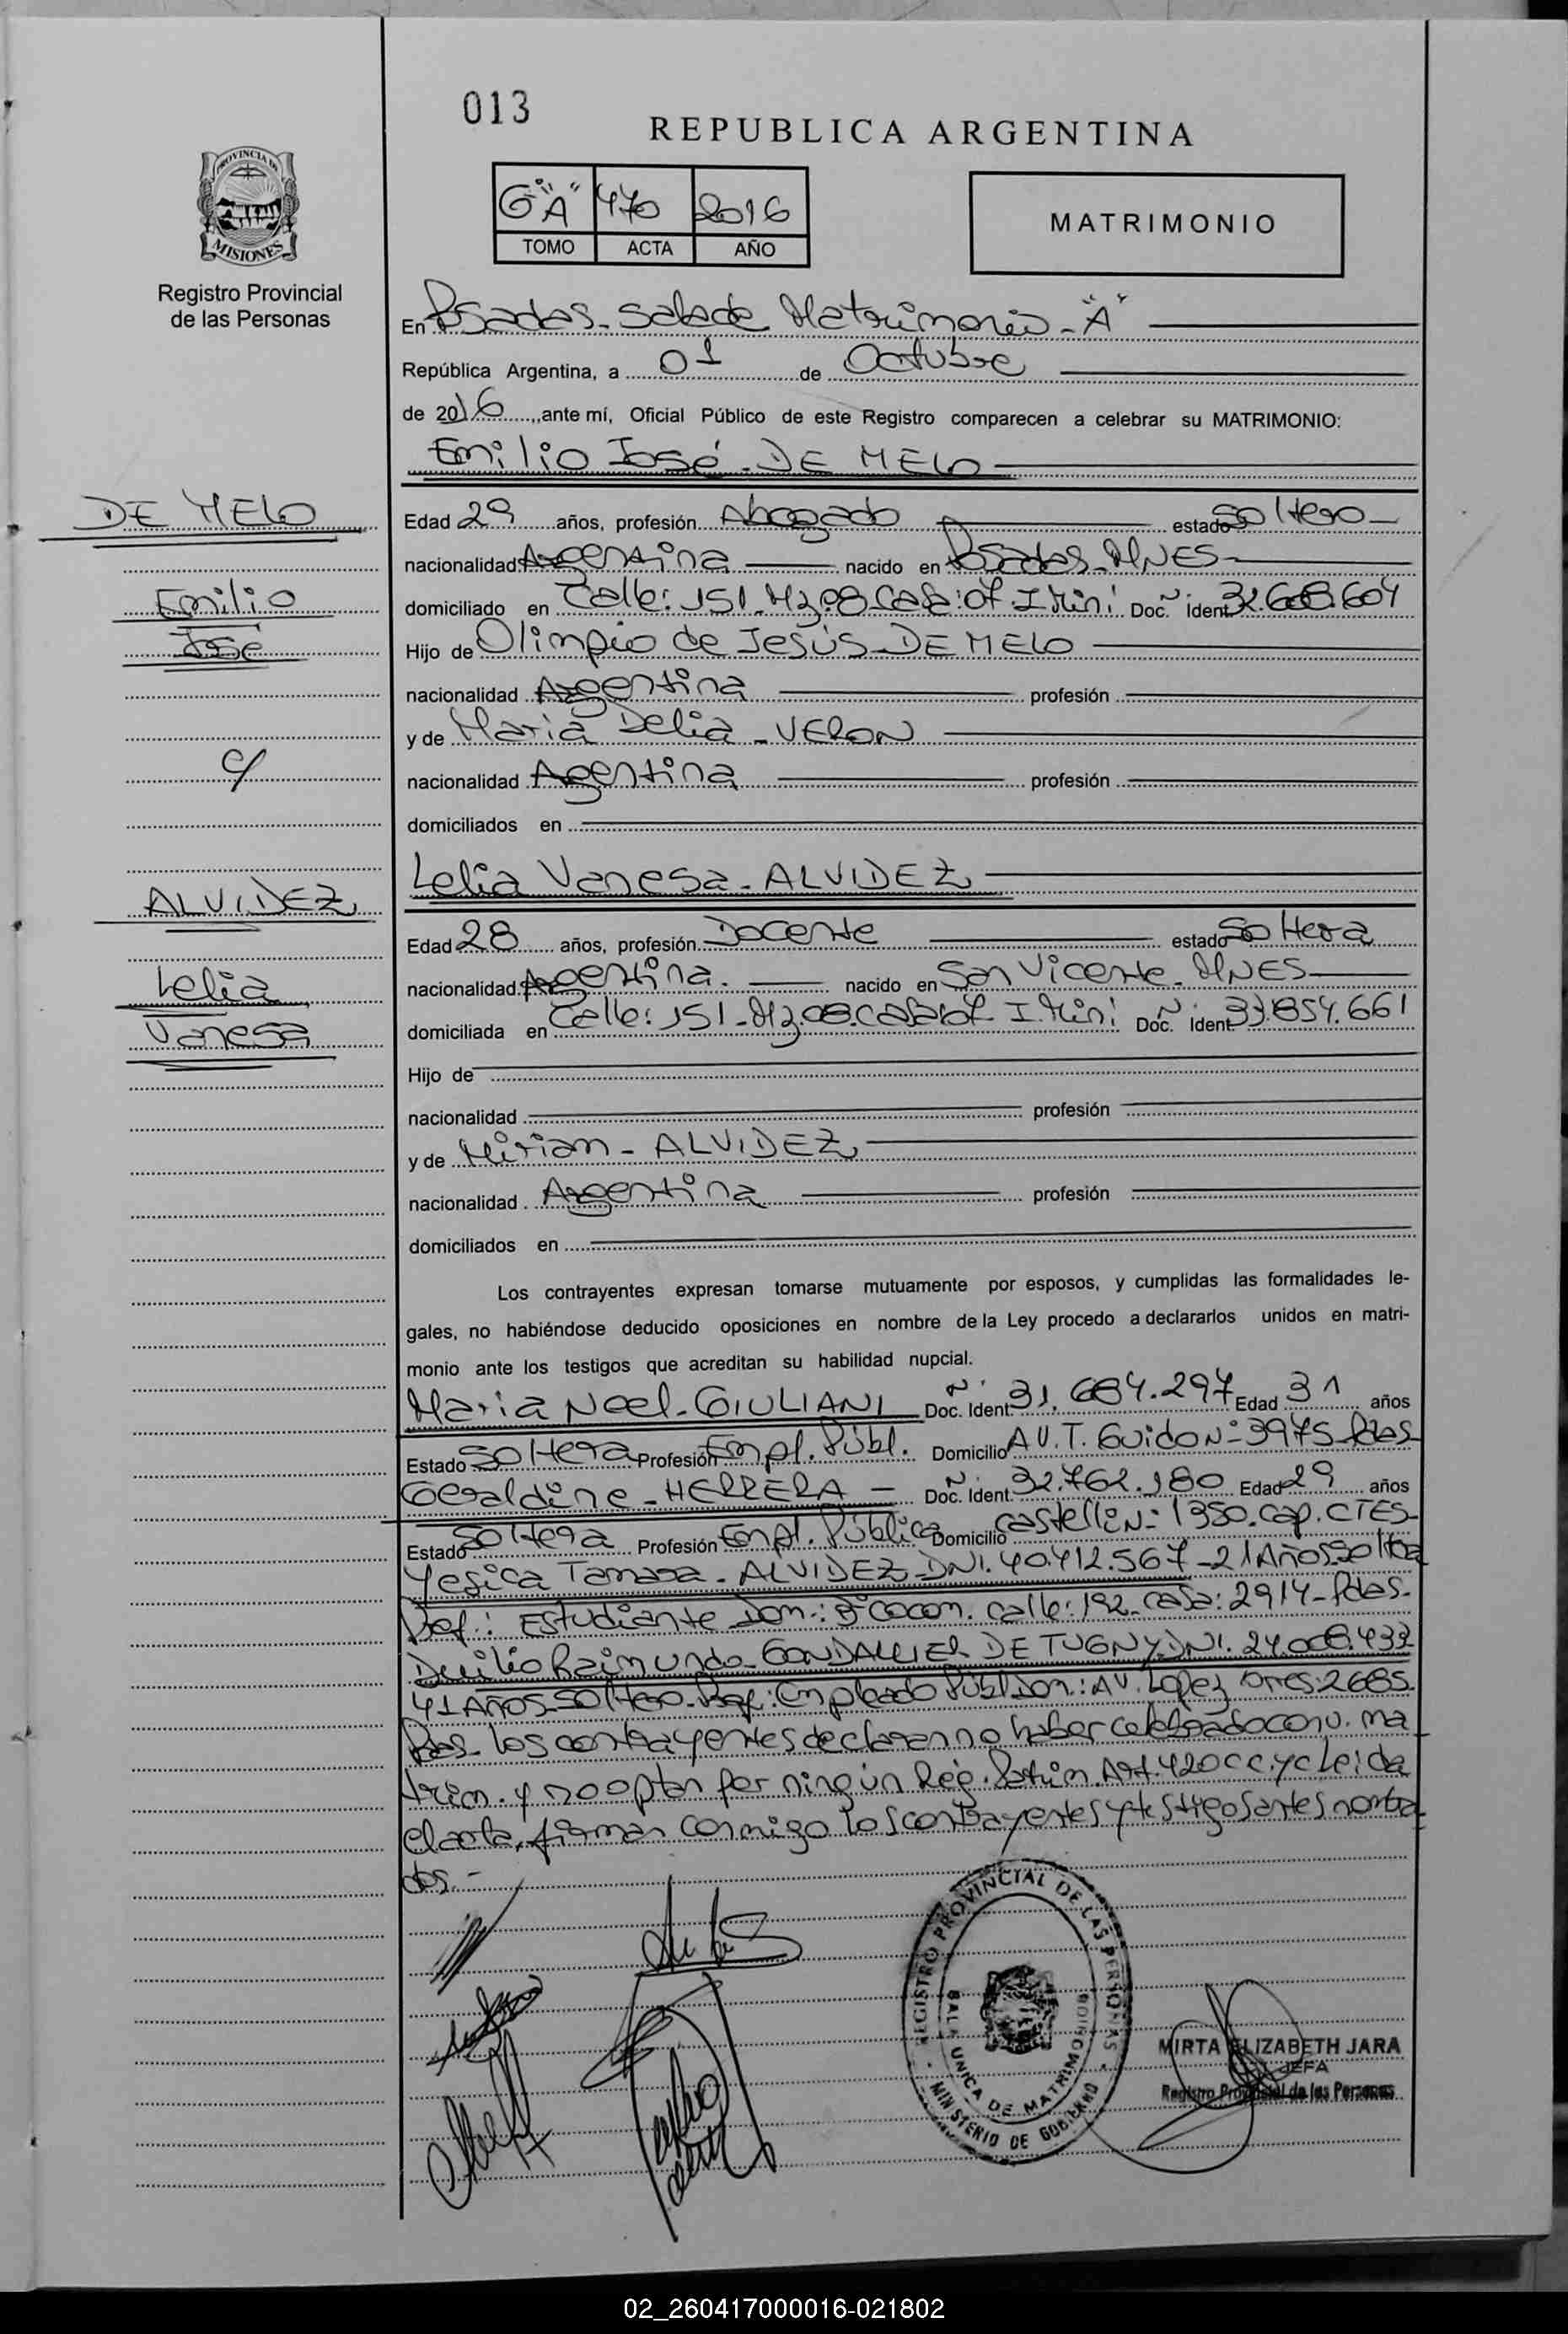 013
REPUBLICA ARGENTINA
6° "A" 470 2016
TOMO ACTA AÑO
MATRIMONIO
PROVINCIA DE
MISIONES
Registro Provincial
de las Personas
En Posadas - Sala de Matrimonio - "A"
República Argentina, a 01 de Octubre
de 2016, ante mí, Oficial Público de este Registro comparecen a celebrar su MATRIMONIO:
Emilio José - DE MELO
DE MELO
Emilio
José
c/
ALVIDEZ
Lelia
Vanesa
Edad 29 años, profesión Abogado estado Soltero
nacionalidad Argentina nacido en Posadas - MNES
domiciliado en Calle: 151 - Mz 08 Casa: 07 I. Miní Doc. Ident. 32.608.604
Hijo de Olimpio de Jesús - DE MELO
nacionalidad Argentina profesión
y de Maria Delia - VERON
nacionalidad Agentina profesión
domiciliados en
Lelia Vanesa - ALVIDEZ
Edad 28 años, profesión Docente estado Soltera
nacionalidad Argentina. nacido en San Vicente - MNES
domiciliada en Calle: 151 - Mz. 08. Casa: 07 I. Miní Doc. Ident. 33.854.661
Hijo de
nacionalidad profesión
y de Mirian - ALVIDEZ
nacionalidad Argentina profesión
domiciliados en
Los contrayentes expresan tomarse mutuamente por esposos, y cumplidas las formalidades le-
gales, no habiéndose deducido oposiciones en nombre de la Ley procedo a declararlos unidos en matri-
monio ante los testigos que acreditan su habilidad nupcial.
Maria Noel - GIULIANI Doc. Ident. 31.684.297 Edad 31 años
Estado Soltera Profesión Empl. Públ. Domicilio AV. T. Guido Nº 3975 - Pdas
Geraldine - HERRERA - Doc. Ident. 32.762.180 Edad 29 años
Estado Soltera Profesión Empl. Pública Domicilio Castelli Nº 1350. Cap. CTES -
Yesica Tamara - ALVIDEZ - DNI. 40.412.567 - 21 Años Soltera
Prof.: Estudiante Dom.: Bº Cocom. Calle: 192 - Casa: 2914 - Pdas.
Duilio Raimundo - GONDALLIER DE TUGNY DNI. 24.008.433
41 Años Soltero - Prof: Empleado Públ Dom: AV. Lopez Torres: 2685.
Pdas - los contrayentes declaran no haber celebrado conv. ma
trim. y no optan por ningún Reg. Patrim. Art. 420 C.C. y C Leida
el acta, firman conmigo los contrayentes y testigos antes nombra
dos. -
REGISTRO PROVINCIAL DE LAS PERSONAS
SALA UNICA DE MATRIMONIO
MINISTERIO DE GOBIERNO
MIRTA ELIZABETH JARA
JEFA
Registro Provincial de las Personas
02_260417000016-021802